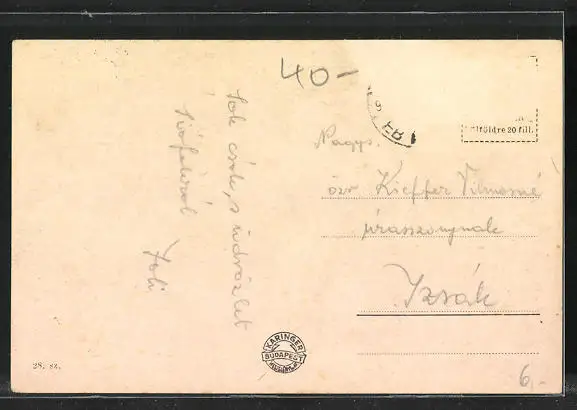 40-
Sok csók, s üdvözlet
Joli
lföldre 20 fill.
Nagys.
özv. Kieffer Vilmosné
úrasszonynak
Izsák
KARINGER
BUDAPEST
28. sz.
6,-